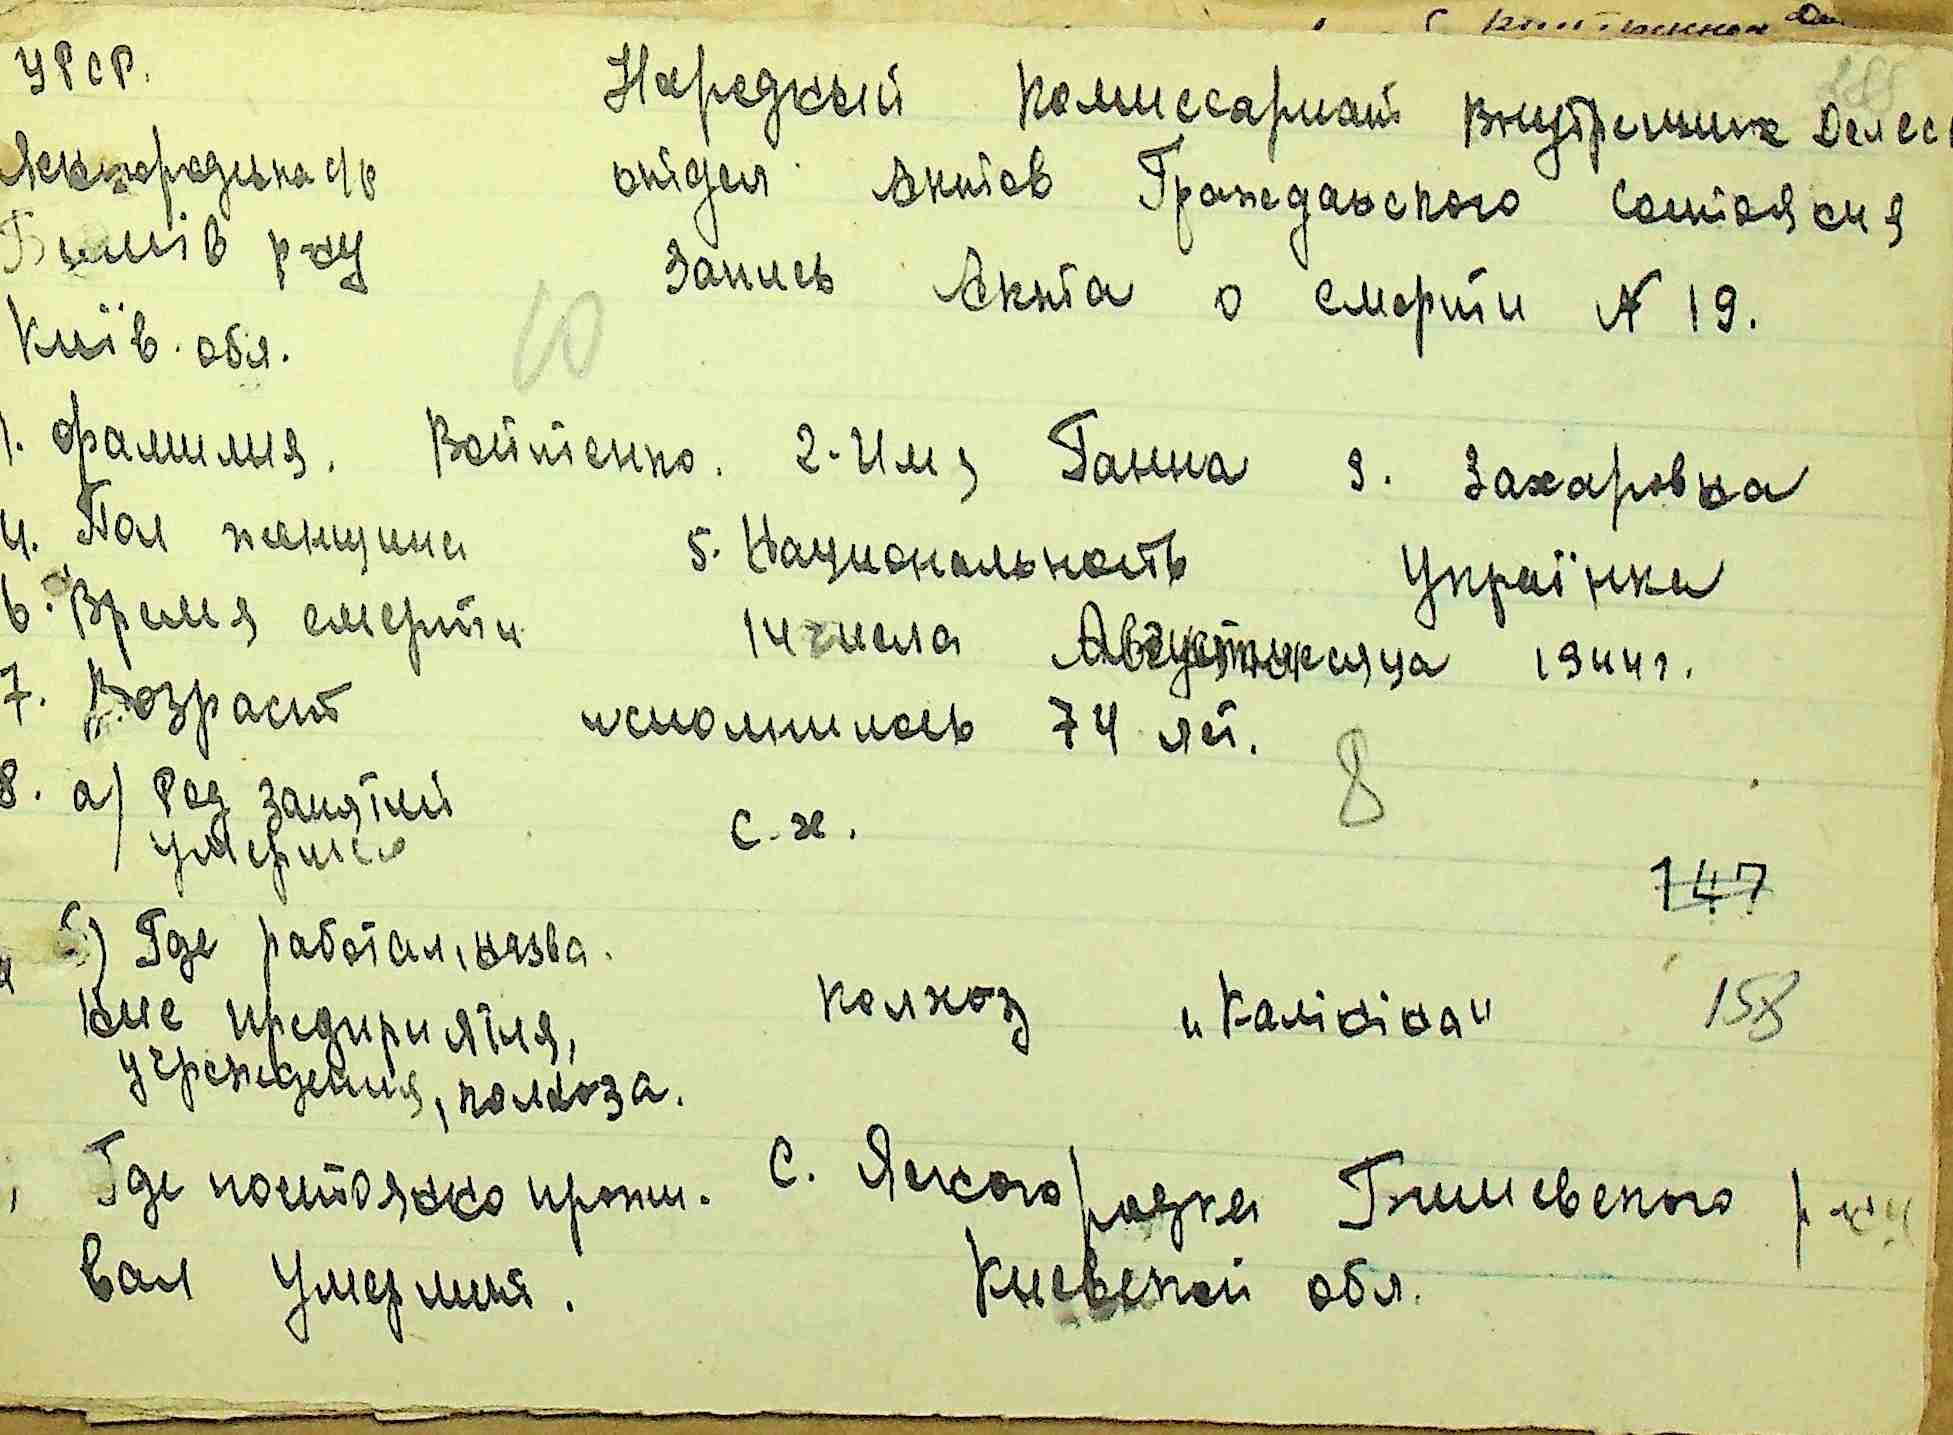 УРСР.
Народный Комиссариат Внутрених Делссс
Ясногородська с/р
отдел Актов Гражданского Состояния
Бишів р-ну
Запись Акта о смерти N 19.
Київ. обл.
1. Фамилия. Войтенко. 2. Имя Ганна 3. Захаровна
4. Пол женщина 5. Национальность Українка
6. Время смерти 14 числа Август месяца 1944 г.
7. Возраст исполнилось 74 лет.
8
8. а) Род занятий с.х.
умершего
147
б) Где работал, назва.
ние предприятия, колхоз "Калініна" 158
учреждения, колхоза.
Где постоянно прожи. с. Ясногородка Бишевского р-ну
вал умерший. Киевской обл.